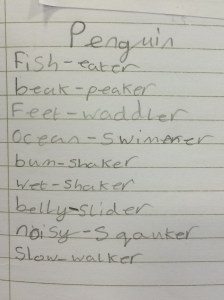 Penguin
Fish-eater
beak-peaker
Feet-waddler
Ocean-Swimmer
bum-shaker
wet-shaker
belly-slider
noisy-Sqauker
Slow-walker